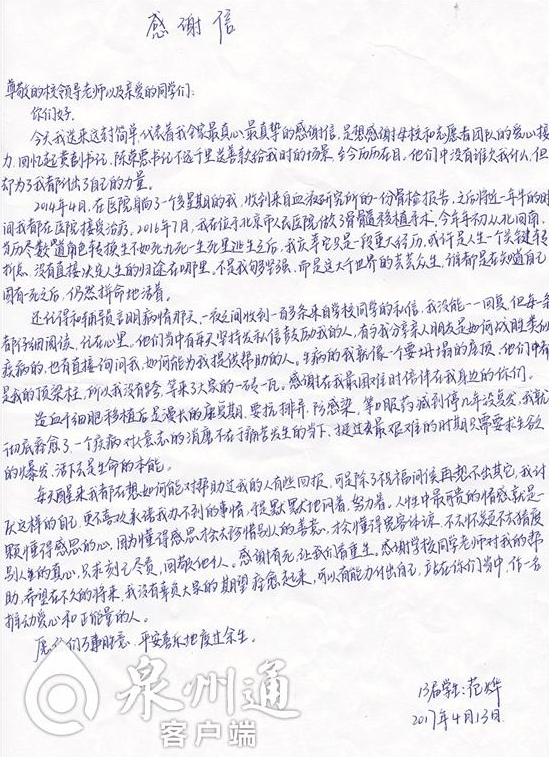 感谢信
尊敬的校领导老师以及亲爱的同学们:
你们好.
今天我送来这封简单,代表着我全家最真心最真挚的感谢信,是想感谢母校和志愿者团队的爱心接
力.回忆起黄副书记、陈荣票书记不远千里送善款给我时的场景,至今历历在目,他们中没有谁欠我什么,但
却为了我都付出了自己的力量。
2014年4月,在医院躺了一个多星期的我,收到来自血液研究所的一份骨检报告,之后将近一年半的时
间我都在医院接受治疗,2016年7月,我在位于北京市人民医院做了骨髓移植手术,今年年初从北回南,
历尽数道角色转换生不如死九死一生死里逃生之后,我庆幸它只是一段重大经历,或许是人生一个关键转
折点,没有直接决定人生的归途在哪里。不是我够坚强,而是这大千世界的芸芸众生,谁都是在知道自己
固有一死之后,仍然拼命地活着。
还记得和辅导员言明病情那天,一夜之间收到一百多条来自学校同学的私信,我没能一一回复,但每条
都仔细阅读,记在心里。他们当中有每天坚持发私信鼓励我的人,有与我分享亲人朋友是如何战胜类似
疾病的,也有直接询问我,如何能为我提供帮助的人。生病的我就像一个要坍塌的房顶,他们中有
是我的顶梁柱,所以我没有垮,等来了大家的一砖一瓦。感谢在我最困难时陪伴在我身边的你们。
造血干细胞移植后是漫长的康复期,要抗排异、防感染,等口服药减到停几年没复发,我就
彻底痊愈了,一个疾病对人意志的消磨不在于病苦发生的当下,挺过来最艰难的时期只需要求生欲
的爆发,活下去是生命的本能。
每天醒来我都在想如何能对帮助过我的人有些回报,可是除了祝福问候再想不出其它,我讨
厌这样的自己,更不喜欢承诺我办不到的事情,但是默默地问着,努力着。人性中最可贵的情感就是一
颗懂得感恩的心,因为懂得感恩才会去珍惜别人的善意,才会懂得宽容体谅,不去怀疑不去猜度
别人生的真心,只求刻己尽责,回敬他人。感谢有光,让我们借重生。感谢学校同学老师对我的帮
助,希望在不久的将来,我没有辜负大家的期望痊愈起来,可以有能力付出自己,站在你们当中,作一名
推动爱心和正能量的人。
愿你们万事胜意,平安喜乐地度过余生。
13届学生:范烨
2017年4月13日
泉州通
客户端